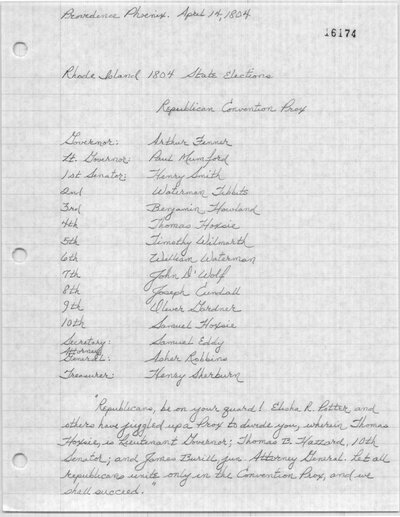 Providence Phoenix. April 14, 1804
16174
Rhode Island 1804 State Elections
Republican Convention Prox
Governor: Arthur Fenner
Lt. Governor: Paul Mumford
1st Senator: Henry Smith
2nd Waterman Tibbits
3rd Benjamin Howland
4th Thomas Hoxsie
5th Timothy Wilmarth
6th William Waterman
7th John D'Wolf
8th Joseph Cundall
9th Oliver Gardner
10th Samuel Hoxsie
Secretary: Samuel Eddy
Attorney
General: Asher Robbins
Treasurer: Henry Sherburn
"Republicans, be on your guard! Elisha R. Potter and
others have juggled up a Prox to divide you, wherein Thomas
Hoxsie, is Lieutenant Governor; Thomas B. Hazzard, 10th
Senator; and James Burill, jun. Attorney General. Let all
republicans unite only in the Convention Prox, and we
shall succeed."